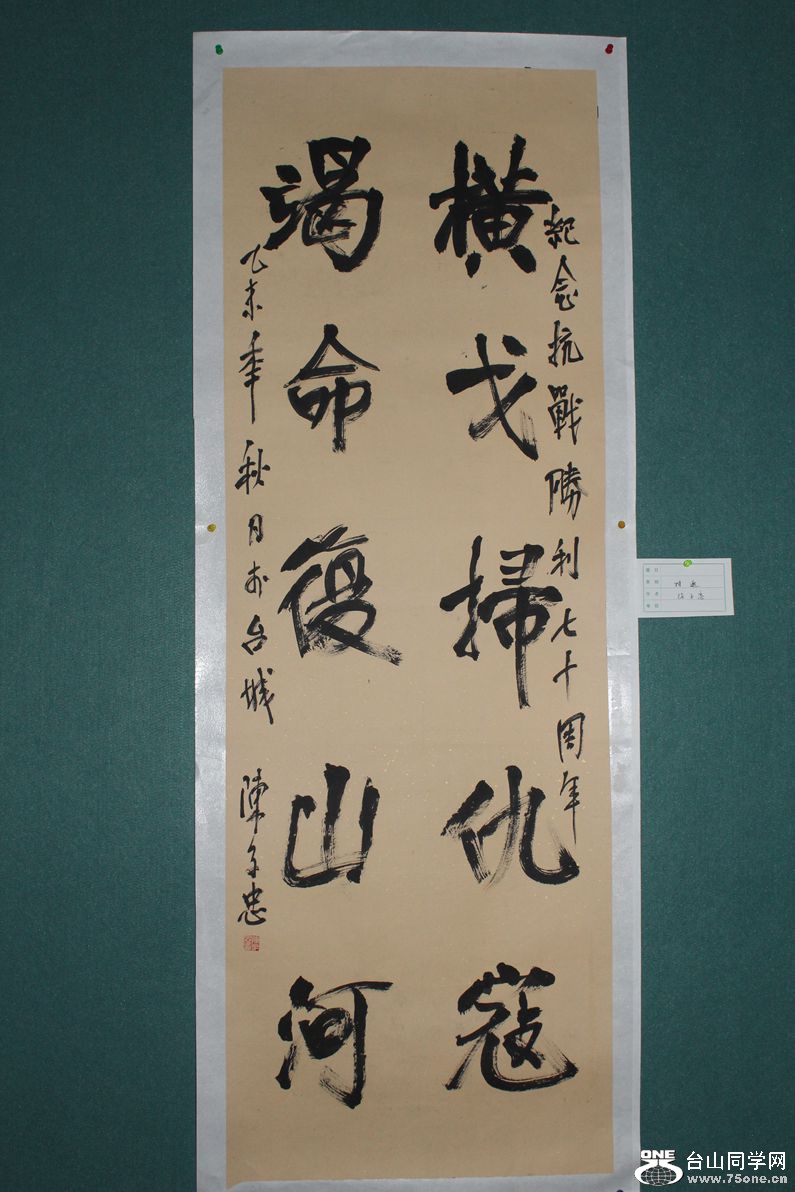 紀念抗戰勝利七十周年
橫戈掃仇寇
渴命復山河
乙未年秋月於台城
陳子忠
ONE
台山同学网
www.75one.cn